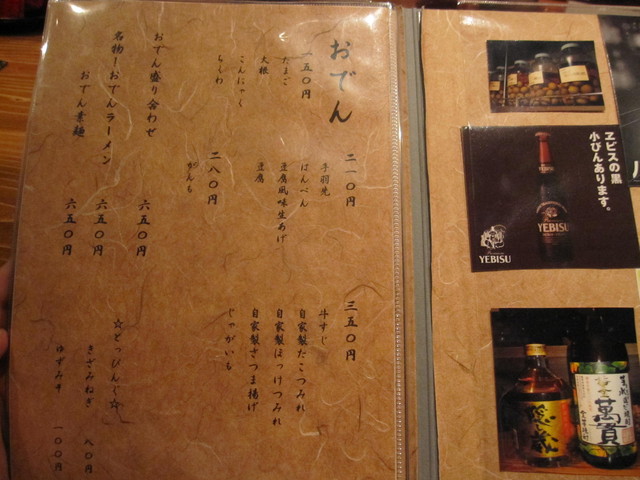 おでん
一五〇円
たまご
大根
こんにゃく
ちくわ
二一〇円
手羽先
はんぺん
豆腐風味生あげ
豆腐
二八〇円
がんも
三五〇円
牛すじ
自家製たこつみれ
自家製ほっけつみれ
自家製さつま揚げ
じゃがいも
おでん盛り合わせ 六五〇円
名物!おでんラーメン 六五〇円
おでん素麺 六五〇円
☆とっぴんぐ☆
きざみねぎ 八〇円
ゆずみそ 一〇〇円
ヱビスの黒
小びんあります。
YEBISU
YEBISU
萬貫